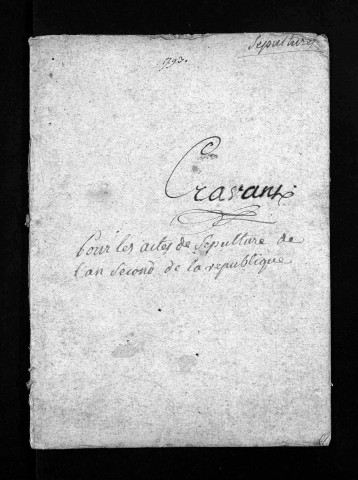 Sepulture
1793.
Cravant
pour les actes de Sepulture de
l'an Second de la republique